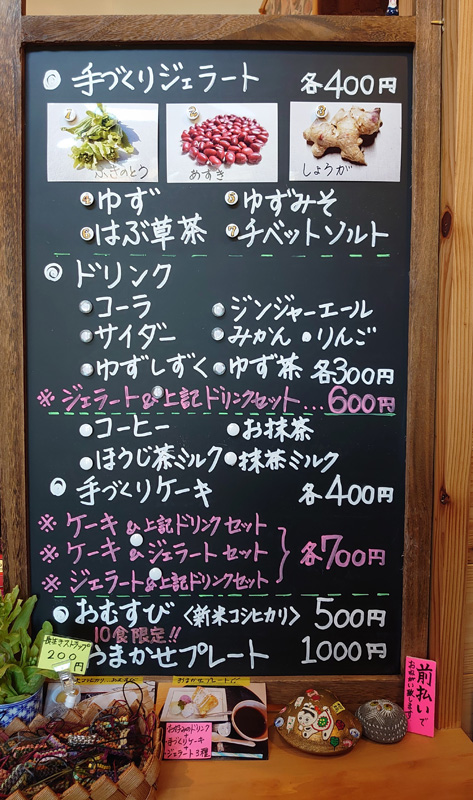 手づくりジェラート 各400円
1 2 3
ふきのとう あずき しょうが
4 ゆず 5 ゆずみそ
6 はぶ草茶 7 チベットソルト
ドリンク
コーラ ジンジャーエール
サイダー みかん りんご
ゆずしずく ゆず茶 各300円
※ジェラート&上記ドリンクセット…600円
コーヒー お抹茶
ほうじ茶ミルク 抹茶ミルク
手づくりケーキ 各400円
※ケーキ&上記ドリンクセット
※ケーキ&ジェラートセット 各700円
※ジェラート&上記ドリンクセット
おむすび〈新米コシヒカリ〉 500円
10食限定!!
おまかせプレート 1000円
長生きストラップ
200円
おまかせプレート
お好みのドリンク
手づくりケーキ
ジェラート3種
前払いで
お願い致します